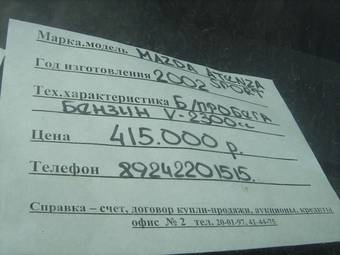 Марка.модель MAZDA ATENZA
SPORT
Год изготовления 2002
Тех.характеристика Б/ПРОБЕГА
БЕНЗИН V-2300сс
Цена 415.000 р.
Телефон 89242201515.
Справка – счет, договор купли-продажи, аукционы, кредиты
офис № 2 тел. 20-01-97, 41-44-75.